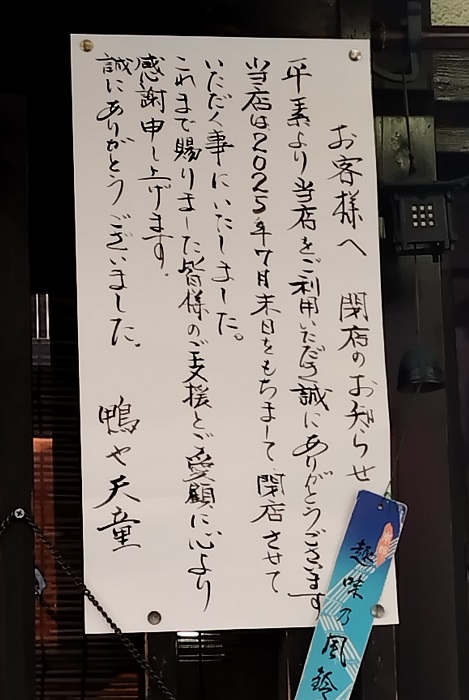 お客様へ 閉店のお知らせ
平素より当店をご利用いただき誠にありがとうございます
当店は2025年7月末日をもちまして閉店させて
いただく事にいたしました。
これまで賜りました皆様のご支援とご愛顧に心より
感謝申し上げます。
誠にありがとうございました。
鴨や天童
趣味乃風鈴